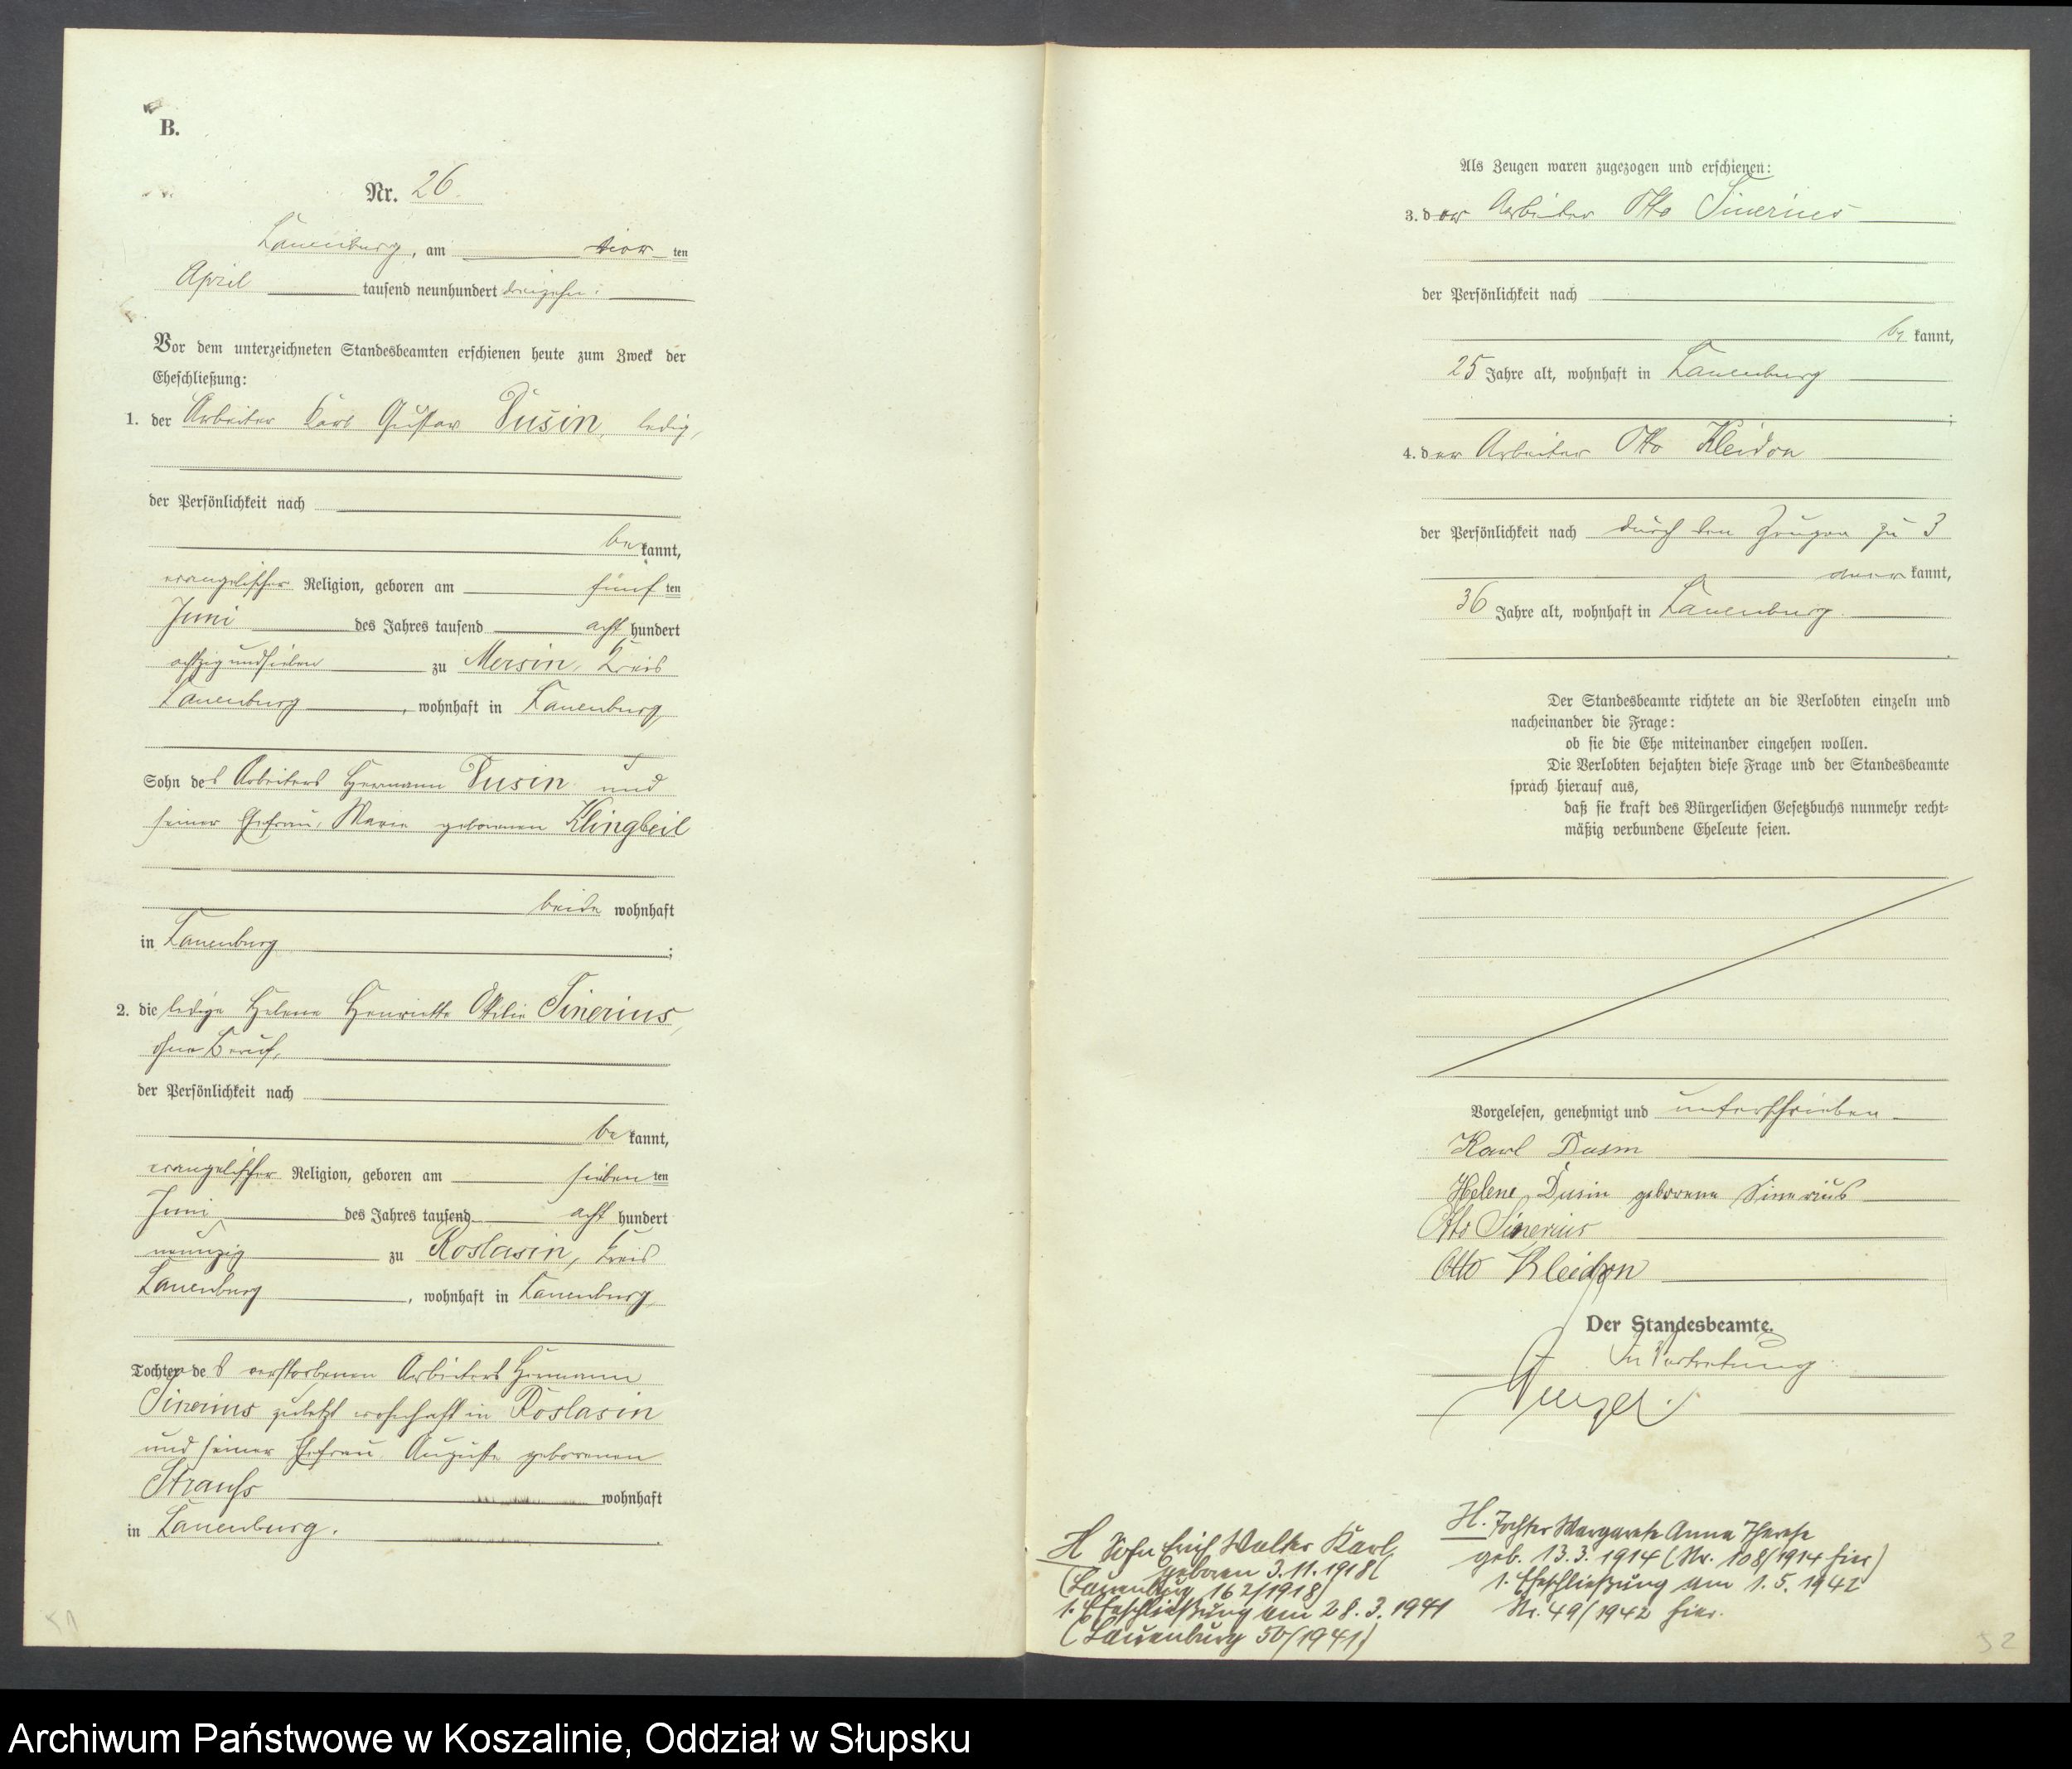 B.
Nr. 26.
Lauenburg, am vier ten
April tausend neunhundert dreizehn.
Vor dem unterzeichneten Standesbeamten erschienen heute zum Zweck der
Eheschließung:
1. der Arbeiter Karl Gustav Dusin, ledig,
der Persönlichkeit nach
be kannt,
evangelischer Religion, geboren am fünf ten
Juni des Jahres tausend acht hundert
achtzigundsieben zu Mersin, Kreis
Lauenburg, wohnhaft in Lauenburg,
Sohn des Arbeiters Hermann Dusin und
seiner Ehefrau, Marie geborenen Klingbeil
beide wohnhaft
in Lauenburg;
2. die ledige Helene Henriette Ottilie Sinerius,
ohne Beruf,
der Persönlichkeit nach
be kannt,
evangelischer Religion, geboren am sieben ten
Juni des Jahres tausend acht hundert
neunzig zu Roslasin, Kreis
Lauenburg, wohnhaft in Lauenburg,
Tochter des verstorbenen Arbeiters Hermann
Sinerius zuletzt wohnhaft in Roslasin
und seiner Ehefrau Auguste geborenen
Strauss wohnhaft
in Lauenburg.
Als Zeugen waren zugezogen und erschienen:
3. der Arbeiter Otto Sinerius
der Persönlichkeit nach
be kannt,
25 Jahre alt, wohnhaft in Lauenburg
;
4. der Arbeiter Otto Kleidon
der Persönlichkeit nach durch den Zeugen zu 3
aner kannt,
36 Jahre alt, wohnhaft in Lauenburg.
Der Standesbeamte richtete an die Verlobten einzeln und
nacheinander die Frage:
ob sie die Ehe miteinander eingehen wollen.
Die Verlobten bejahten diese Frage und der Standesbeamte
sprach hierauf aus,
daß sie kraft des Bürgerlichen Gesetzbuchs nunmehr recht-
mäßig verbundene Eheleute seien.
Vorgelesen, genehmigt und unterschrieben
Karl Dusin
Helene Dusin geborene Sinerius
Otto Sinerius
Otto Kleidon
Der Standesbeamte.
In Vertretung.
H Sohn Erich Walter Karl
geboren 3.11.1918(
(Lauenburg 162/1918)
1. Eheschließung am 28.3.1941
(Lauenburg 50/1941)
H. Tochter Margarete Anna Therese
geb. 13.3.1914 (Nr. 108/1914 hier)
1. Eheschließung am 1.5.1942
Nr. 49/1942 hier.
51
52
Archiwum Państwowe w Koszalinie, Oddział w Słupsku